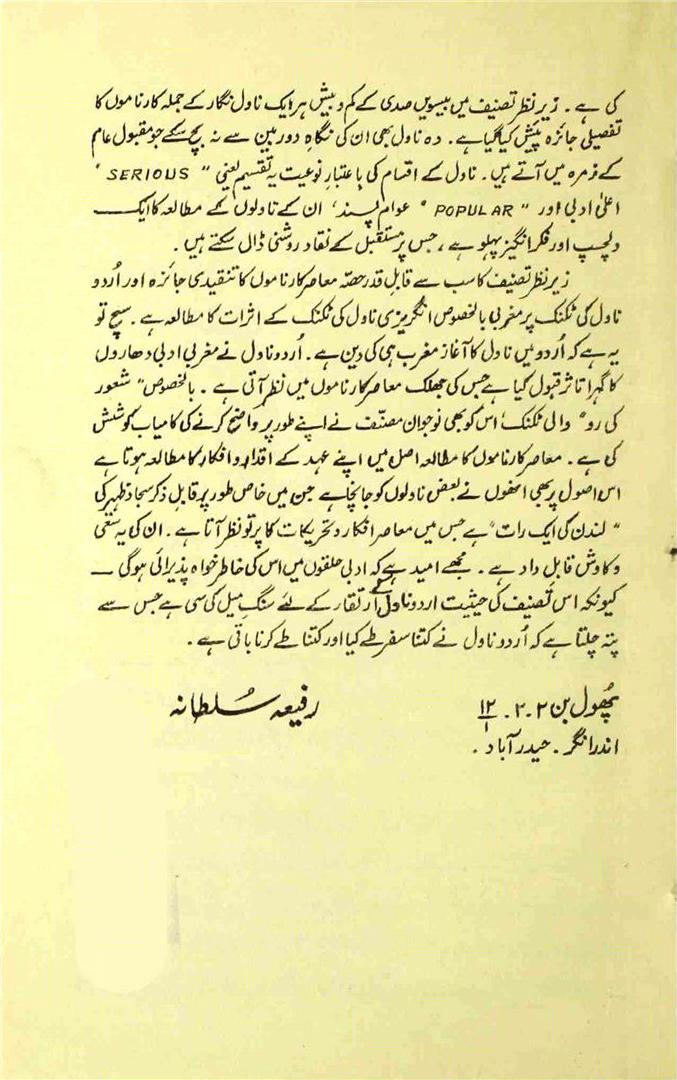 کی ہے۔ زیر نظر تصنیف میں بیسویں صدی کے کم و بیش ہر ایک ناول نگار کے جملہ کارناموں کا
تفصیلی جائزہ پیش کیا گیا ہے۔ وہ ناول بھی ان کی نگاہ دوربین سے نہ بچ سکے جو مقبول عام
کے زمرہ میں آتے ہیں۔ ناول کے اقسام کی باعتبارِ نوعیت یہ تقسیم یعنی "SERIOUS"
اعلیٰ ادبی اور "POPULAR" عوام پسند، ان کے ناولوں کے مطالعہ کا ایک
دلچسپ اور فکر انگیز پہلو ہے، جس پر مستقبل کے نقاد روشنی ڈال سکتے ہیں۔
زیر نظر تصنیف کا سب سے قابلِ قدر حصہ معاصر کارناموں کا تنقیدی جائزہ اور اُردو
ناول کی تکنک پر مغربی بالخصوص انگریزی ناول کی تکنک کے اثرات کا مطالعہ ہے۔ سچ تو
یہ ہے کہ اُردو میں ناول کا آغاز مغرب ہی کی دین ہے۔ اُردو ناول نے مغربی ادبی دھاروں
کا گہرا تاثر قبول کیا ہے جس کی جھلک معاصر کارناموں میں نظر آتی ہے۔ بالخصوص "شعور
کی رو" والی تکنک، اس کو بھی نوجوان مصنّف نے اپنے طور پر واضح کرنے کی کامیاب کوشش
کی ہے۔ معاصر کارناموں کا مطالعہ اصل میں اپنے عہد کے اقدار و افکار کا مطالعہ ہوتا ہے
اس اصول پر بھی انھوں نے بعض ناولوں کو جانچا ہے جن میں خاص طور پر قابلِ ذکر سجاد ظہیر کی
"لندن کی ایک رات" ہے جس میں معاصر افکار و تحریکات کا پرتو نظر آتا ہے۔ ان کی یہ سعی
و کاوش قابلِ داد ہے۔ مجھے امید ہے کہ ادبی حلقوں میں اس کی خاطر خواہ پذیرائی ہوگی —
کیونکہ اس تصنیف کی حیثیت اردو ناول کے ارتقار کے لئے سنگِ میل کی سی ہے جس سے
پتہ چلتا ہے کہ اُردو ناول نے کتنا سفر طے کیا اور کتنا طے کرنا باقی ہے۔
پھول بن ۲.۲. ۱۲/۱ رفیعہ سُلطانہ
اندرا نگر۔ حیدر آباد۔